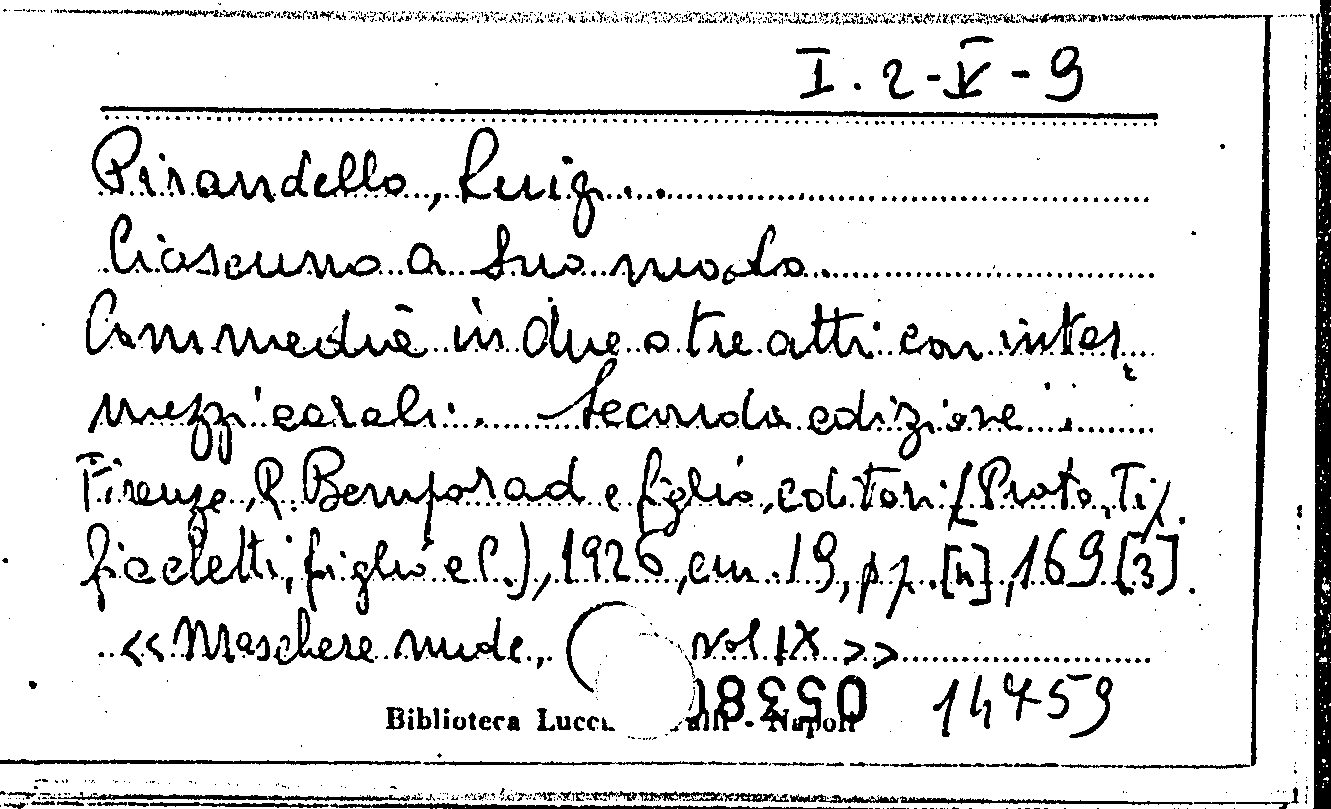 I. 2-V-9
Pirandello, Luigi.
Ciascuno a suo modo.
Commedia in due o tre atti con inter
mezzi corali. Seconda edizione.
Firenze, R. Bemporad e figlio, editori (Prato, Tip.
fiachetti, figlio e C.), 1926, cm. 19, pp. [4], 169 [3].
<<Maschere nude, vol IX >>
Biblioteca Lucch - Napoli 14459